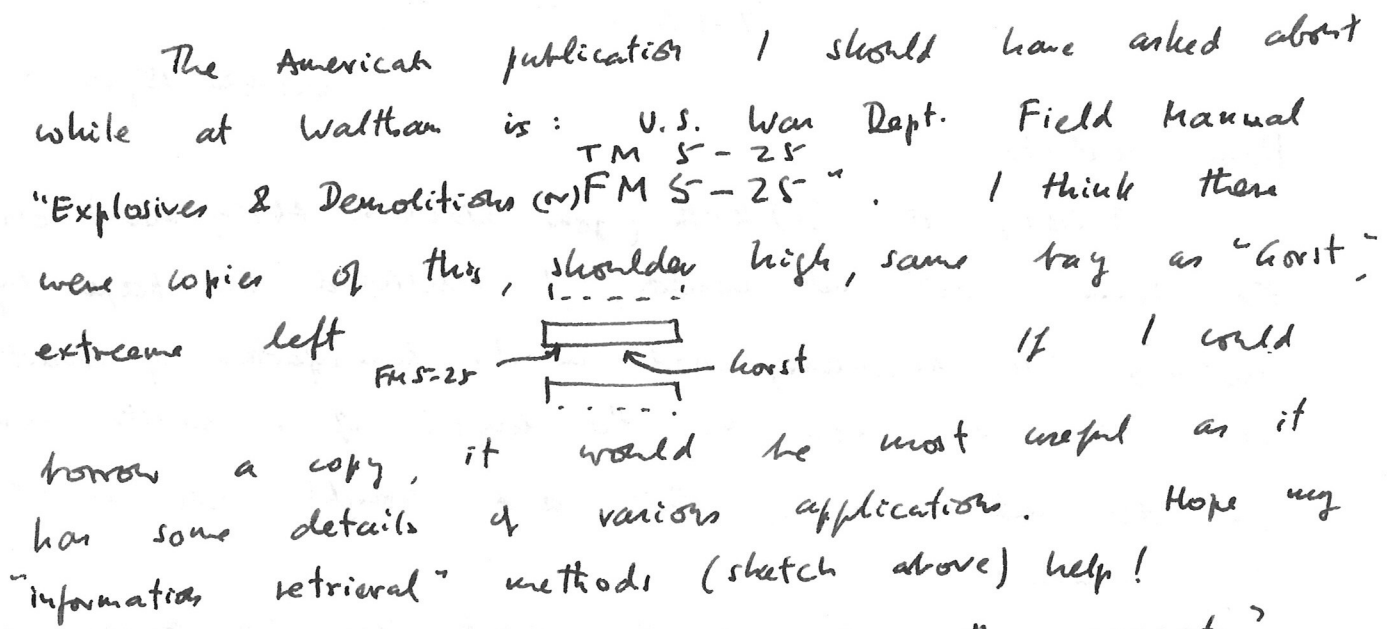 The American publication I should have asked about
while at Waltham is: U.S. War Dept. Field Manual
TM 5-25
"Explosives & Demolitions (~) FM 5-25". I think there
were copies of this, shoulder high, same bay as "Gorst",
extreame left
If I could
FM 5-25
Gorst
borrow a copy, it would be most useful as it
has some details of various applications. Hope my
"information retrieval" methods (sketch above) help!